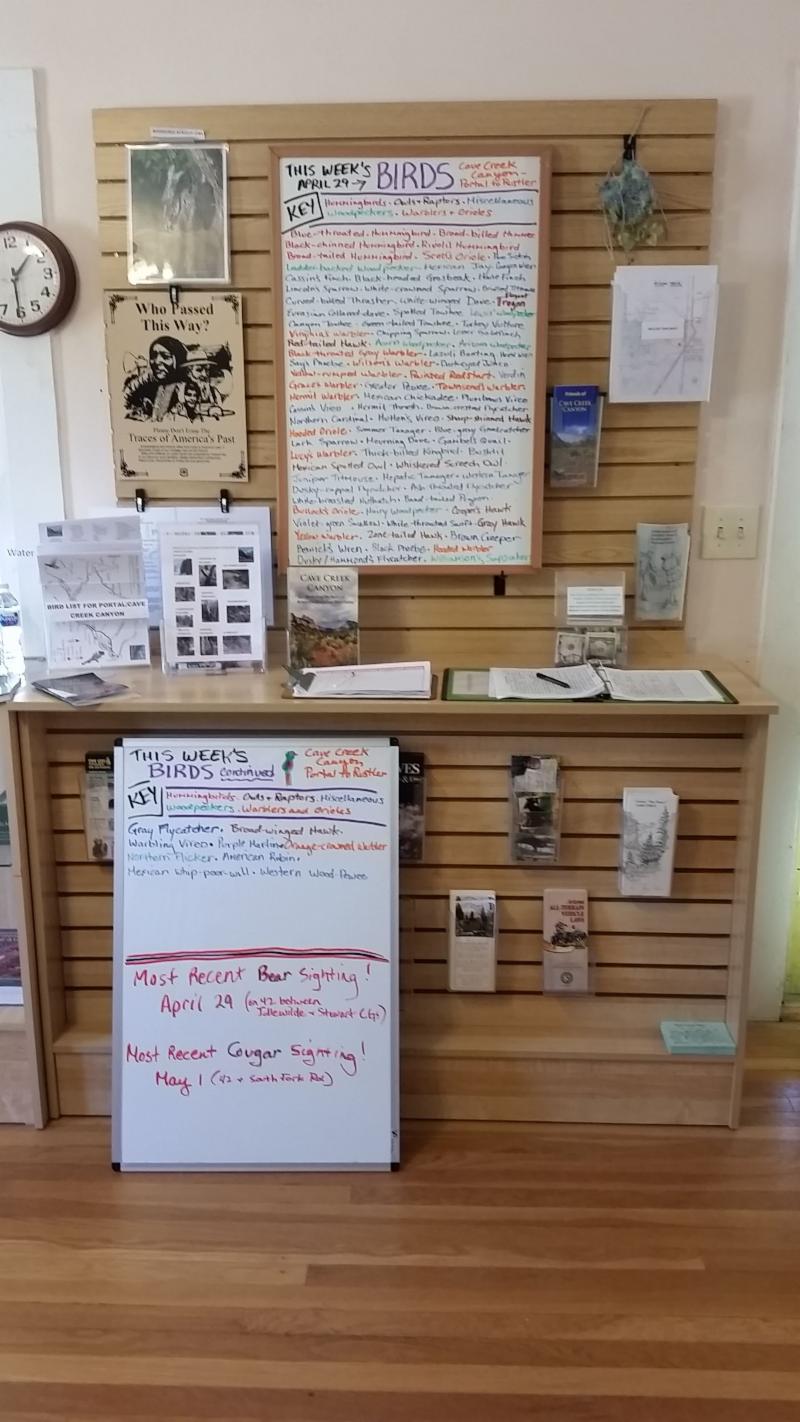 THIS WEEK'S BIRDS
APRIL 29 →
Cave Creek
Canyon -
Portal to Rustler
KEY
Hummingbirds · Owls + Raptors · Miscellaneous
Woodpeckers · Warblers + Orioles
Blue-throated Hummingbird · Broad-billed Hummer
Black-chinned Hummingbird · Rivoli's Hummingbird
Broad-tailed Hummingbird · Scott's Oriole · Pine Siskin
Ladder-backed Woodpecker · Mexican Jay
Cassin's Finch · Black-headed Grosbeak · House Finch
Lincoln's Sparrow · White-crowned Sparrow · Bridled Titmouse
Curved-billed Thrasher · White-winged Dove · Elegant Trogon
Eurasian Collared-dove · Spotted Towhee
Canyon Towhee · Green-tailed Towhee · Turkey Vulture
Virginia's Warbler · Chipping Sparrow · Lesser Goldfinch
Red-tailed Hawk · Acorn Woodpecker · Arizona Woodpecker
Black-throated Gray Warbler · Lazuli Bunting
Says Phoebe · Wilson's Warbler · Dark-eyed Junco
Yellow-rumped Warbler · Painted Redstart · Verdin
Grace's Warbler · Greater Pewee · Townsend's Warbler
Hermit Warbler · Mexican Chickadee · Plumbeous Vireo
Cassin's Vireo · Hermit Thrush · Brown-crested Flycatcher
Northern Cardinal · Hutton's Vireo · Sharp-shinned Hawk
Hooded Oriole · Summer Tanager · Blue-gray Gnatcatcher
Lark Sparrow · Mourning Dove · Gambel's Quail
Lucy's Warbler · Thick-billed Kingbird · Bushtit
Mexican Spotted Owl · Whiskered Screech Owl
Juniper Titmouse · Hepatic Tanager · Western Tanager
Dusky-capped Flycatcher · Ash-throated Flycatcher
White-breasted Nuthatch · Band-tailed Pigeon
Bullock's Oriole · Hairy Woodpecker · Cooper's Hawk
Violet-green Swallow · White-throated Swift · Gray Hawk
Yellow Warbler · Zone-tailed Hawk · Brown Creeper
Bewick's Wren · Black Phoebe
Dusky/Hammond's Flycatcher · Williamson's Sapsucker
12
Who Passed
This Way?
Please Don't Erase The
Traces of America's Past
Friends of
CAVE CREEK
CANYON
Water
BIRD LIST FOR PORTAL/CAVE
CREEK CANYON
CAVE CREEK
CANYON
THIS WEEK'S
BIRDS continued
Cave Creek
Canyon
Portal to Rustler
KEY
Hummingbirds · Owls + Raptors · Miscellaneous
Woodpeckers · Warblers and Orioles
Gray Flycatcher · Broad-winged Hawk ·
Warbling Vireo · Purple Martin · Orange-crowned Warbler
Northern Flicker · American Robin ·
Mexican Whip-poor-will · Western Wood-Pewee
Most Recent Bear Sighting!
April 29 (on 42 between
Idlewilde + Stewart CGs)
Most Recent Cougar Sighting!
May 1 (42 + South Fork Rd)
ALL-TERRAIN
VEHICLE
LAWS